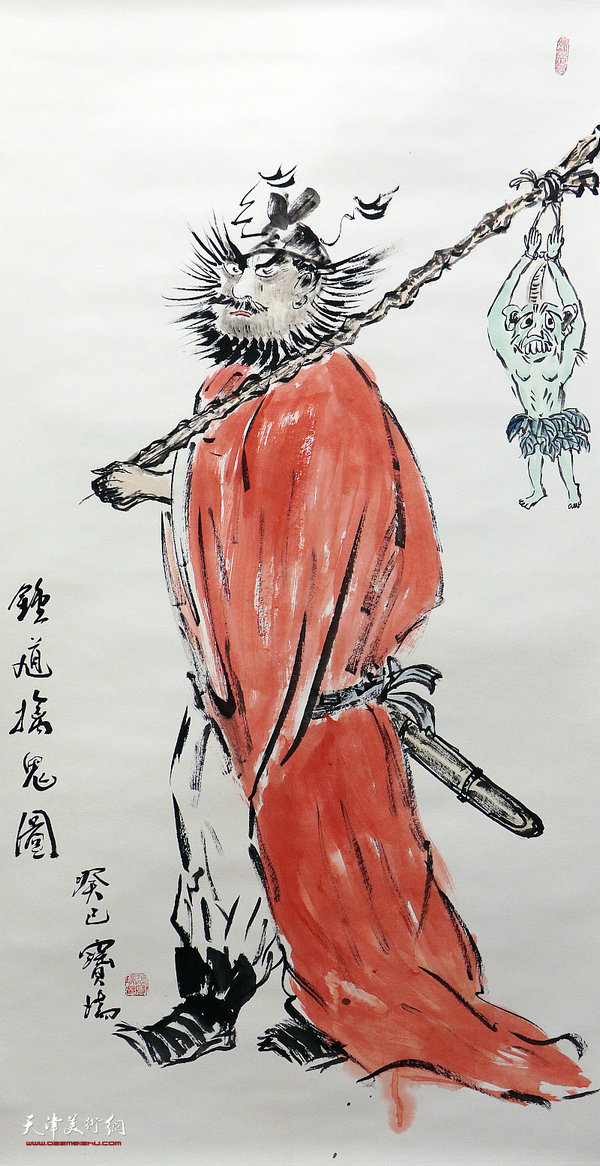 鍾馗擒鬼圖
癸巳寶瑞
天津美術網
www.022meishu.com